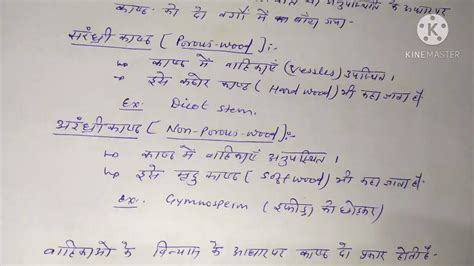 काष्ठ को दो वर्गों में बांटा गया
KINEMASTER
सरंध्री काष्ठ [Porous-wood]:-
→ काष्ठ में वाहिकाएं (Vessles) उपस्थित।
→ इसे कठोर काष्ठ (Hard wood) भी कहा जाता है
Ex: Dicot stem.
अरंध्री काष्ठ [Non-Porous-wood]:-
→ काष्ठ में वाहिकाएं अनुपस्थित।
→ इसे मृदु काष्ठ (Soft wood) भी कहा जाता है.
Ex: Gymnosperm (इफीड्रा को छोड़कर)
वाहिकाओं के विन्यास के आधार पर काष्ठ दो प्रकार होती है-